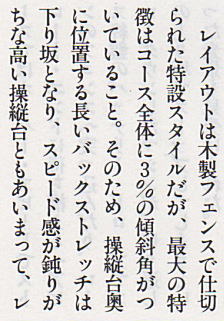 レイアウトは木製フェンスで仕切
られた特設スタイルだが、最大の特
徴はコース全体に3%の傾斜角がつ
いていること。そのため、操縦台奥
に位置する長いバックストレッチは
下り坂となり、スピード感が鈍りが
ちな高い操縦台ともあいまって、レ